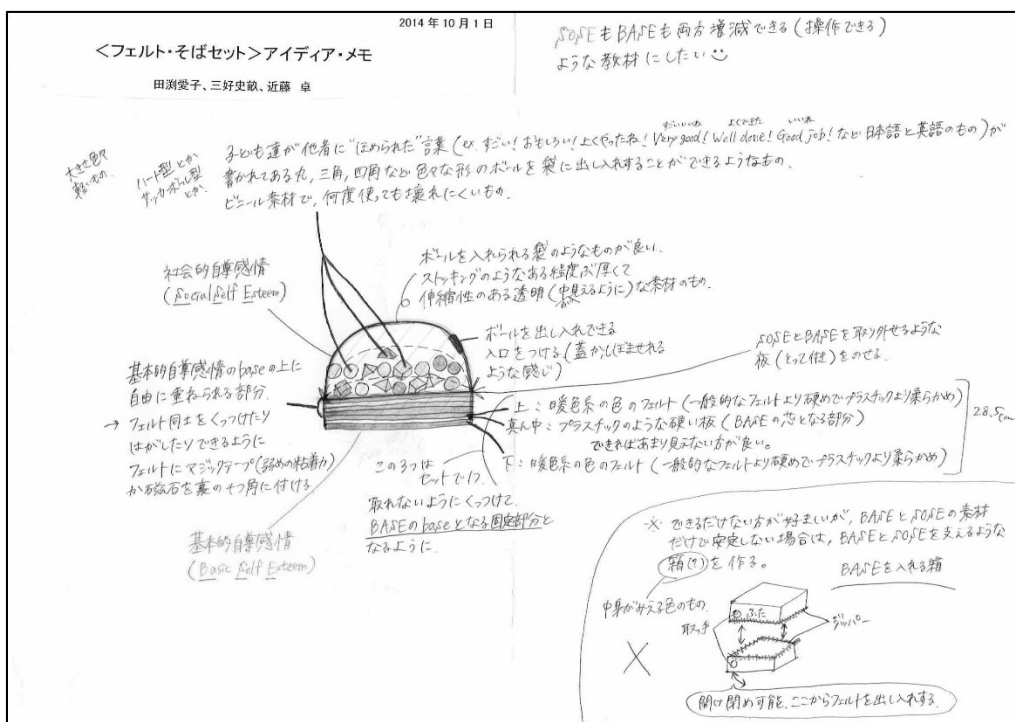 2014年10月1日
<フェルト・そばセット>アイディア・メモ
田渕愛子、三好史畝、近藤 卓
SOSEもBASEも両方増減できる(操作できる)
ような教材にしたい
大きさ色々
軽いもの。
ハート型とか
サッカーボール型
とか。
すごいいね よくできた いいね
子ども達が他者に"ほめられた"言葉(ex. すごい!おもしろい!よくやったね!Very good! Well done! Good job!など日本語と英語のもの)が
書かれてある丸,三角,四角など色々な形のボールを袋に出し入れすることができるようなもの.
ビニール素材で,何度使っても壊れにくいもの.
社会的自尊感情
(Social Self Esteem)
ボールを入れられる袋のようなものが良い.
ストッキングのようなある程度ぶ厚くて
伸縮性のある透明(中見えるように)な素材のもの.
が
ボールを出し入れできる
入口をつける(蓋かしぼませれる
ような感じ)
SOSEとBASEを取り外せるような
板(とって付き)をのせる.
基本的自尊感情のbaseの上に
自由に重ねられる部分.
→ フェルト同士をくっつけたり
はがしたりできるように
フェルトにマジックテープ(弱めの粘着力)
か磁石を裏の4つ角に付ける
上:暖色系の色のフェルト(一般的なフェルトより硬めでプラスチックより柔らかめ)
真ん中:プラスチックのような硬い板(BASEの芯となる部分)
できればあまり見えない方が良い.
下:暖色系の色のフェルト(一般的なフェルトより硬めでプラスチックより柔らかめ)
28.5cm
この3つは
セットで1つ.
取れないようにくっつけて.
BASEのbaseとなる固定部分と
なるように.
基本的自尊感情
(Basic Self Esteem)
※ できるだけない方が好ましいが,BASEとSOSEの素材
だけで安定しない場合は,BASEとSOSEを支えるような
箱(?)を作る。
BASEを入れる箱
中身がみえる色のもの.
取っ手
ふた
ジッパー
開け閉め可能.ここからフェルトを出し入れする.